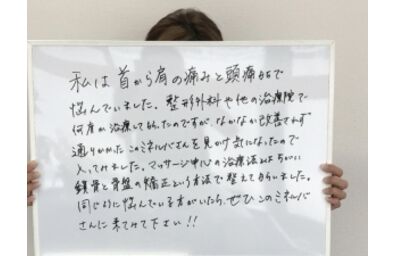 私は首から肩の痛みと頭痛で
悩んでいました。整形外科や他の治療院で
何度か治療してもらったのですが、なかなか改善されず
通りかかったこのミネルバさんを見かけ気になったので
入ってみました。マッサージ中心の治療法とはちがい
鎖骨と骨盤の矯正という方法で整えてもらいました。
同じように悩んでいる方がいたら、ぜひこのミネルバ
さんに来てみて下さい!!